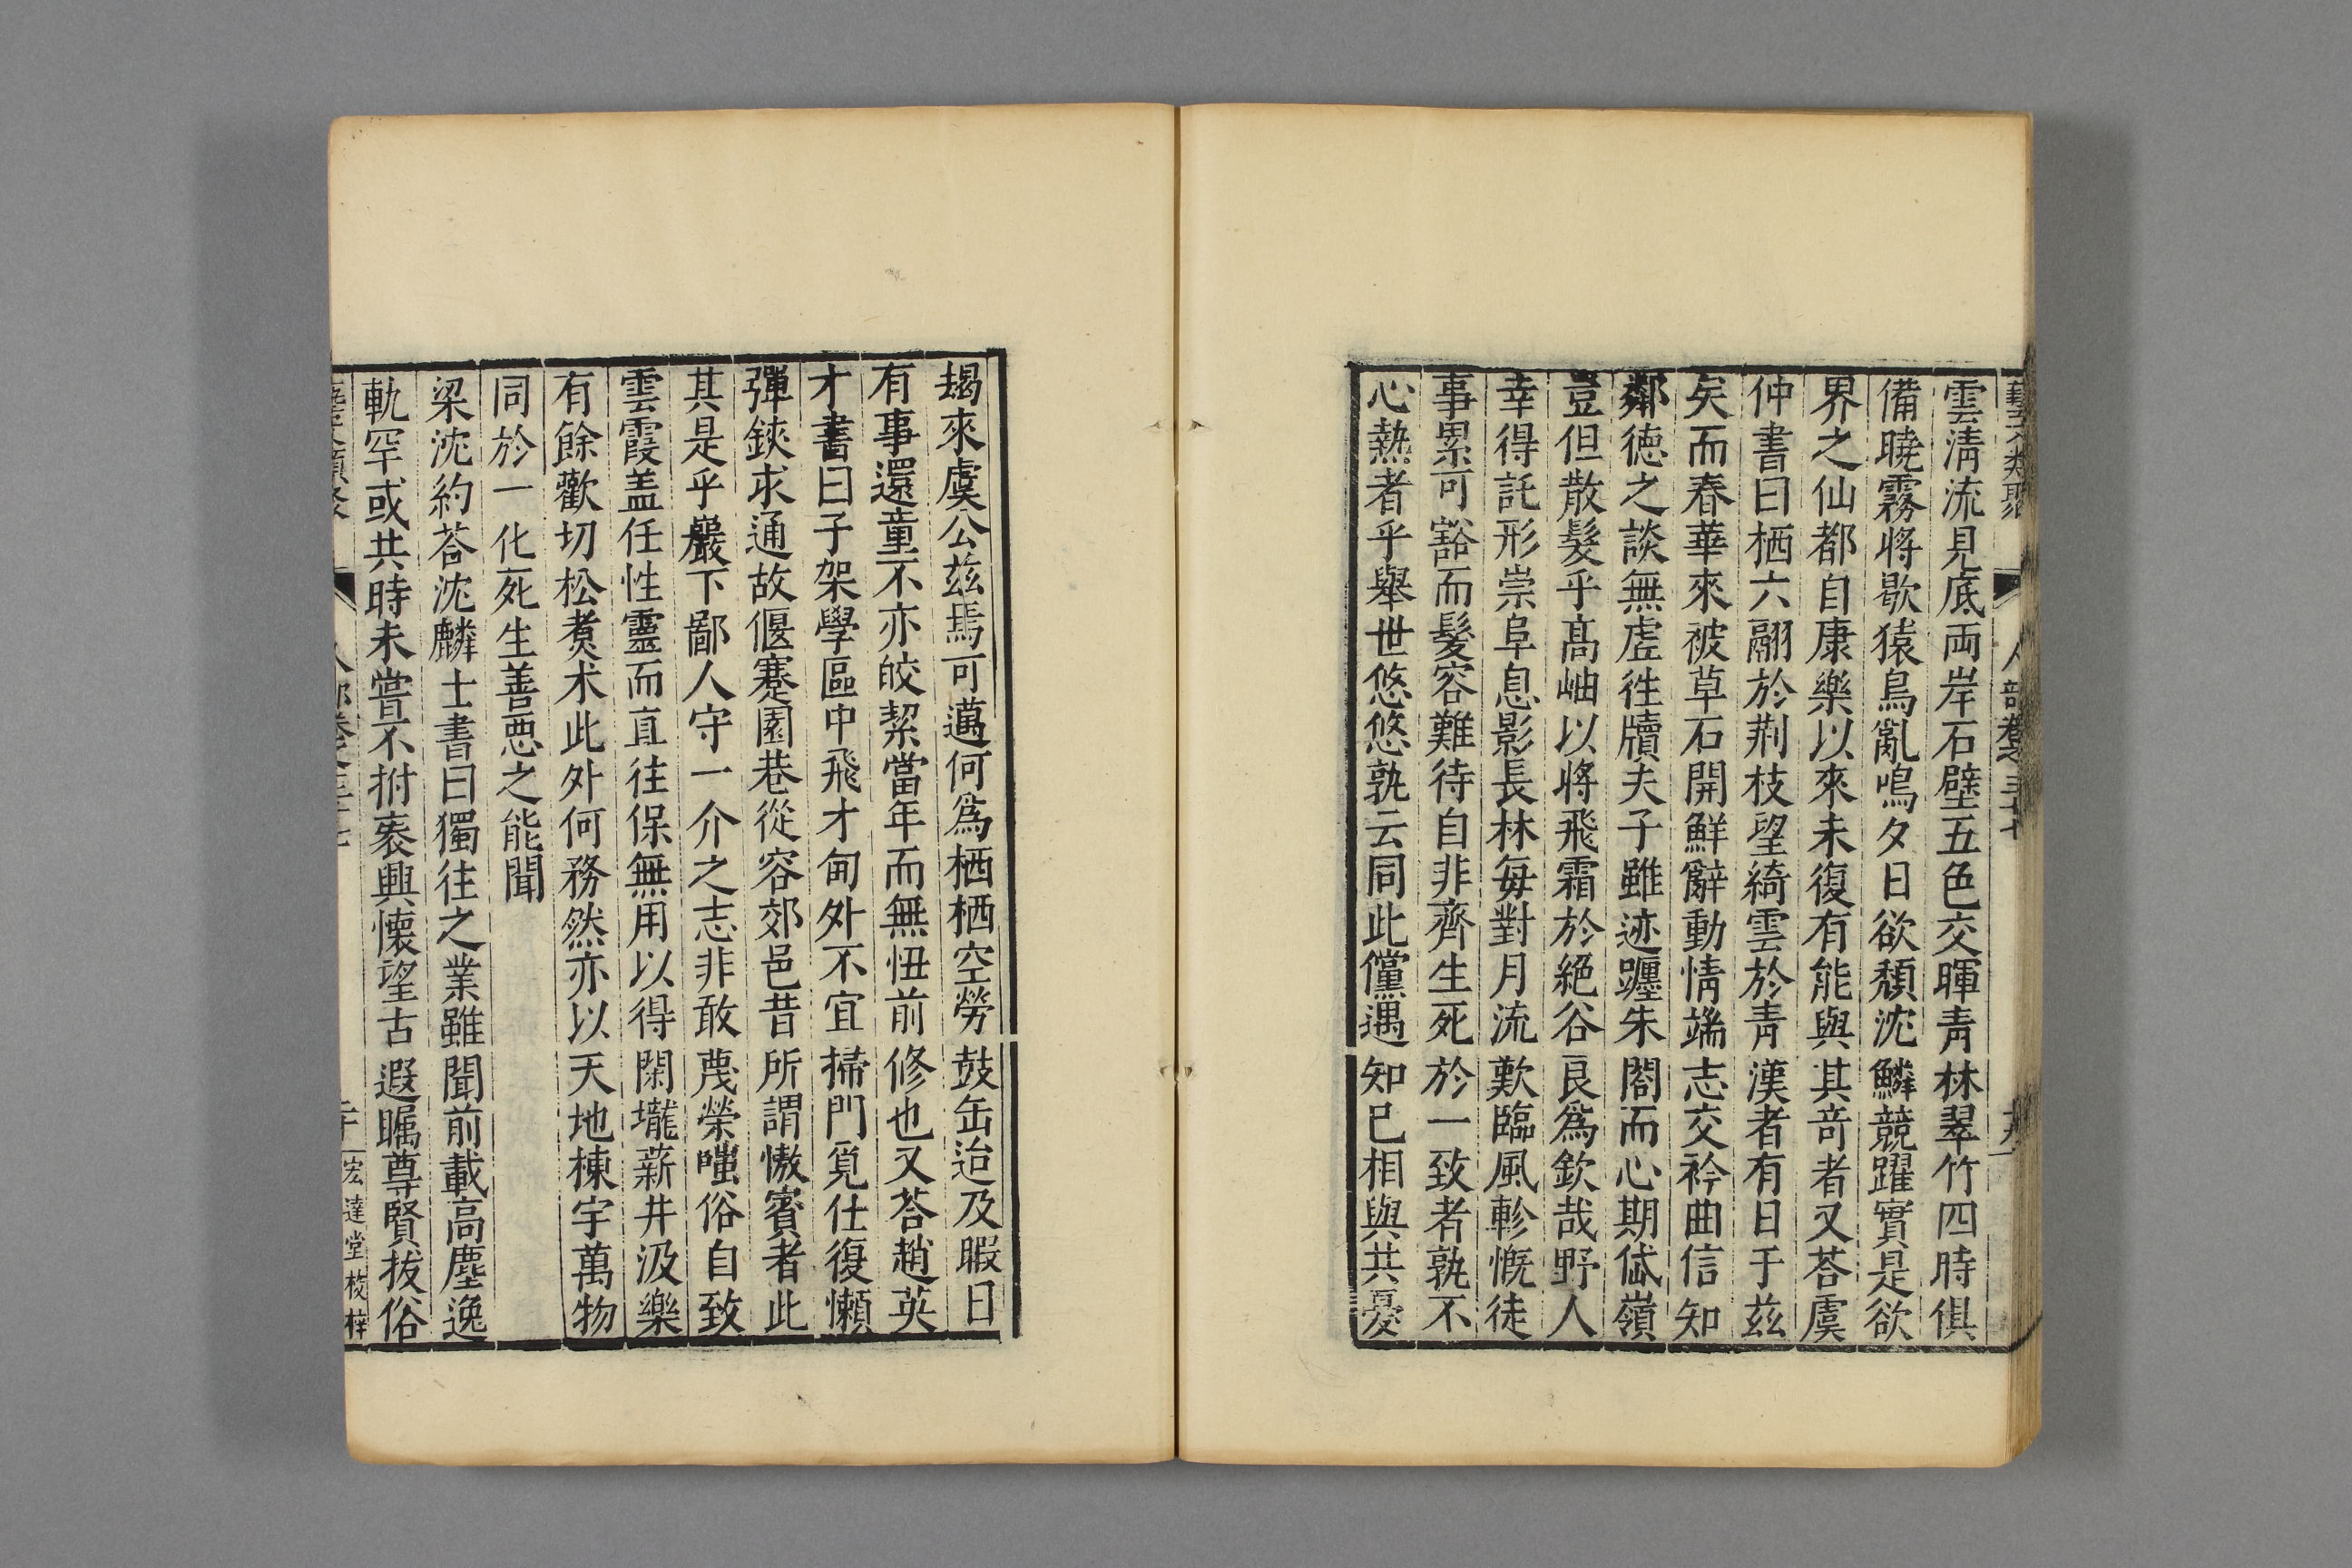 藝文類聚 人部卷之三十七
雲淸流見底両岸石壁五色交暉靑林翠竹四時俱
備曉霧將歇猿鳥亂鳴夕日欲頹沈鱗競躍實是欲
界之仙都自康樂以來未復有能與其竒者又荅虞
仲書曰栖六翮於荆枝望綺雲於靑漢者有日于兹
矣而春華來被草石開鮮辭動情端志交衿曲信知
鄰徳之談無虛徃牘夫子雖迹躔朱閣而心期岱嶺
豈但散髮乎髙岫以將飛霜於絕谷良爲欽哉野人
幸得託形崇阜息影長林每對月流歎臨風軫慨徒
事累可豁而髮容難待自非齊生死於一致者孰不
心熱者乎舉世悠悠孰云同此儻遇知己相與共憂
朅來虞公兹焉可邁何爲栖栖空勞鼓缶迨及暇日
有事還童不亦皎絜當年而無忸前修也又荅趙英
才書曰子架學區中飛才甸外不宜掃門覓仕復懶
彈鋏求通故偃蹇園巷從容郊邑昔所謂慠賓者此
其是乎巖下鄙人守一介之志非敢蔑榮嗤俗自致
雲霞盖任性靈而直往保無用以得閑壠薪井汲樂
有餘歡切松煑术此外何務然亦以天地棟宇萬物
同於一化死生善悪之能聞
梁沈約荅沈麟士書曰獨往之業雖聞前載高塵逸
軌罕或共時未嘗不拊袠興懷望古遐矚尊賢拔俗
人部卷之三十七 二十 宏達堂校梓